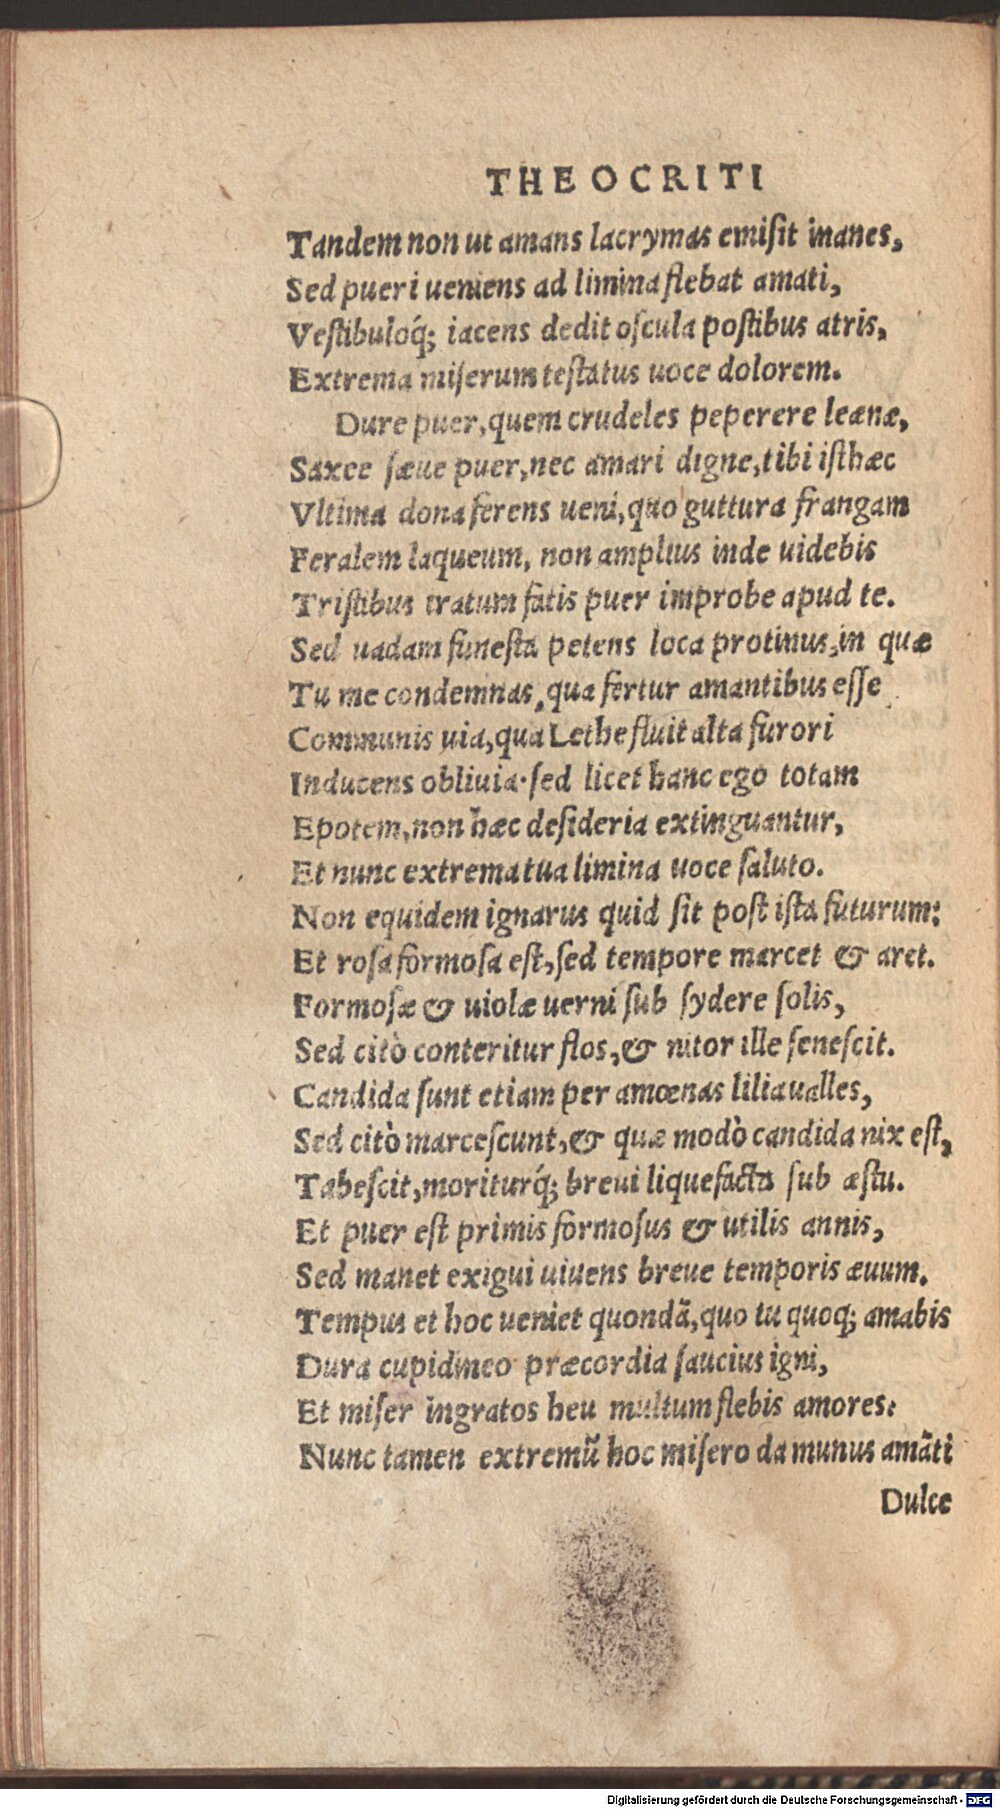 THEOCRITI
Tandem non ut amans lacrymas emiſit inanes,
Sed pueri ueniens ad limina flebat amati,
Veſtibuloq́; iacens dedit oſcula poſtibus atris,
Extrema miſerum teſtatus uoce dolorem.
Dure puer, quem crudeles peperere leænæ,
Saxee ſæue puer, nec amari digne, tibi iſthæc
Vltima dona ferens ueni, quo guttura frangam
Feralem laqueum, non amplius inde uidebis
Triſtibus iratum fatis puer improbe apud te.
Sed uadam funeſta petens loca protinus, in quæ
Tu me condemnas, qua fertur amantibus eſſe
Communis uia, qua Lethe fluit alta furori
Inducens obliuia·ſed licet hanc ego totam
Epotem, non hæc deſideria extinguantur,
Et nunc extrema tua limina uoce ſaluto.
Non equidem ignarus quid ſit poſt iſta futurum:
Et roſa formoſa eſt, ſed tempore marcet & aret.
Formoſæ & uiolæ uerni ſub ſydere ſolis,
Sed citò conteritur flos, & nitor ille ſeneſcit.
Candida ſunt etiam per amœnas lilia ualles,
Sed citò marceſcunt, & quæ modò candida nix eſt,
Tabeſcit, moriturq́; breui liquefacta ſub æſtu.
Et puer eſt primis formoſus & utilis annis,
Sed manet exigui uiuens breue temporis æuum.
Tempus et hoc ueniet quondã, quo tu quoq; amabis
Dura cupidineo præcordia ſaucius igni,
Et miſer ingratos heu multum flebis amores:
Nunc tamen extremũ hoc miſero da munus amãti
Dulce
Digitalisierung gefördert durch die Deutsche Forschungsgemeinschaft - DFG